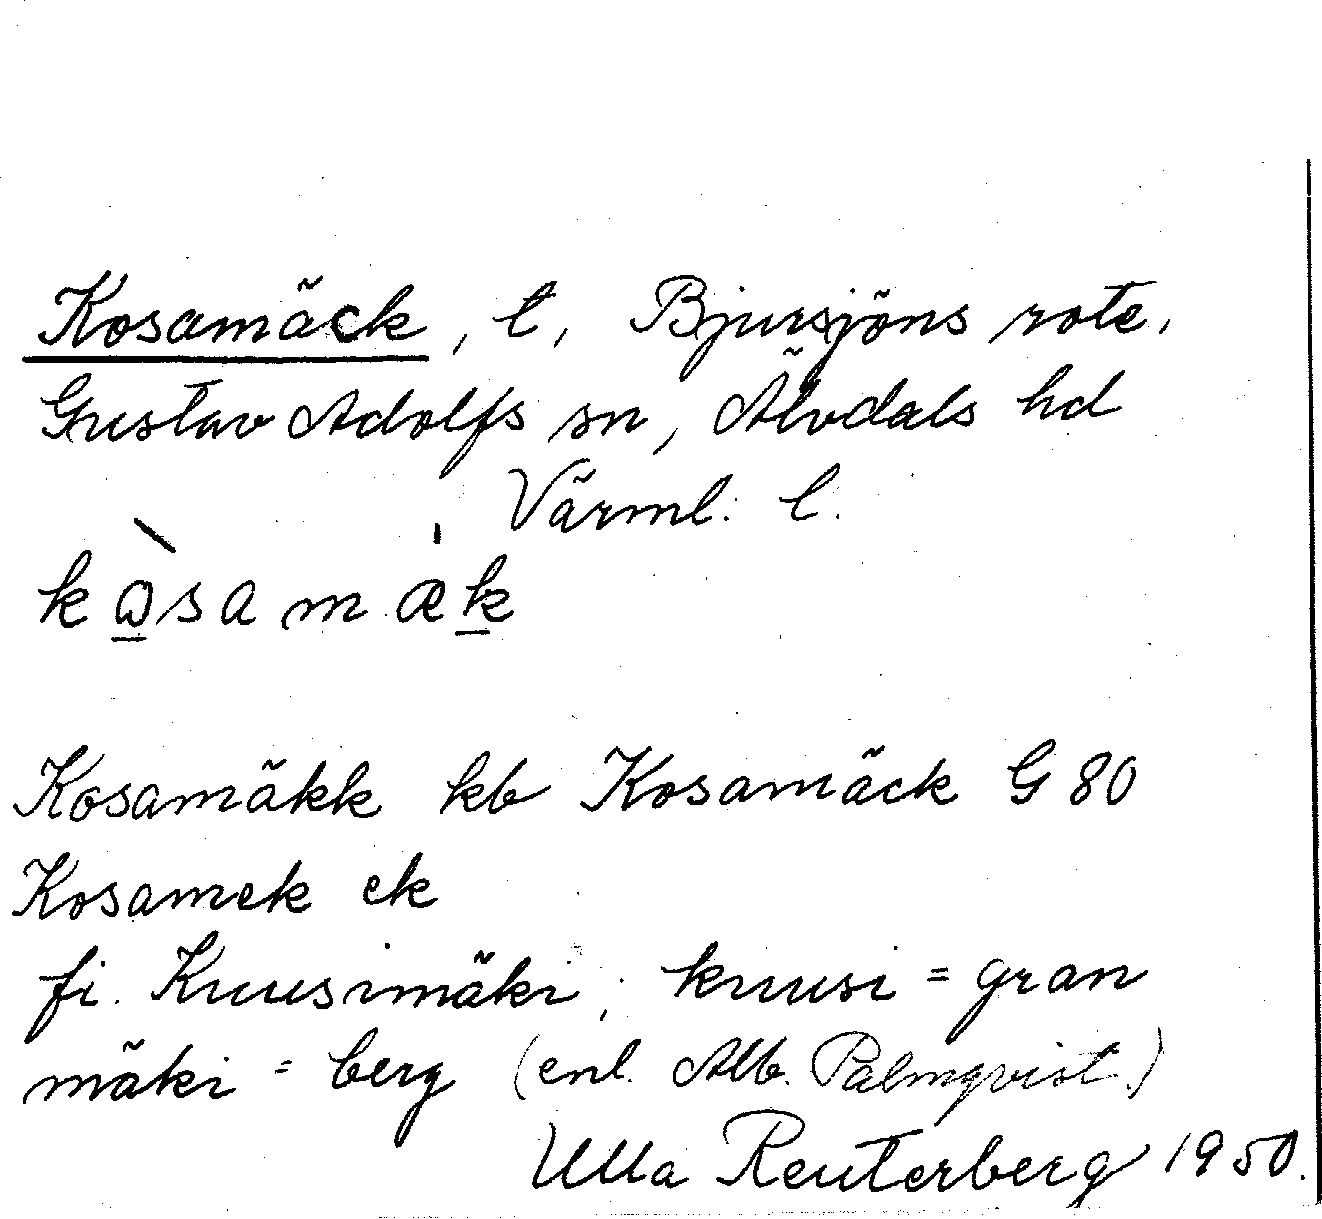 Kosamäck, t, Bjursjöns rote,
Gustav Adolfs sn, Älvdals hd
Värml. l.
kɷ̀samæk
Kosamäkk kb Kosamäck G 80
Kosamek ek
fi. Kuusimäki; kuusi = gran
mäki = berg (enl. Alb. Palmqvist.)
Ulla Reuterberg 1950.